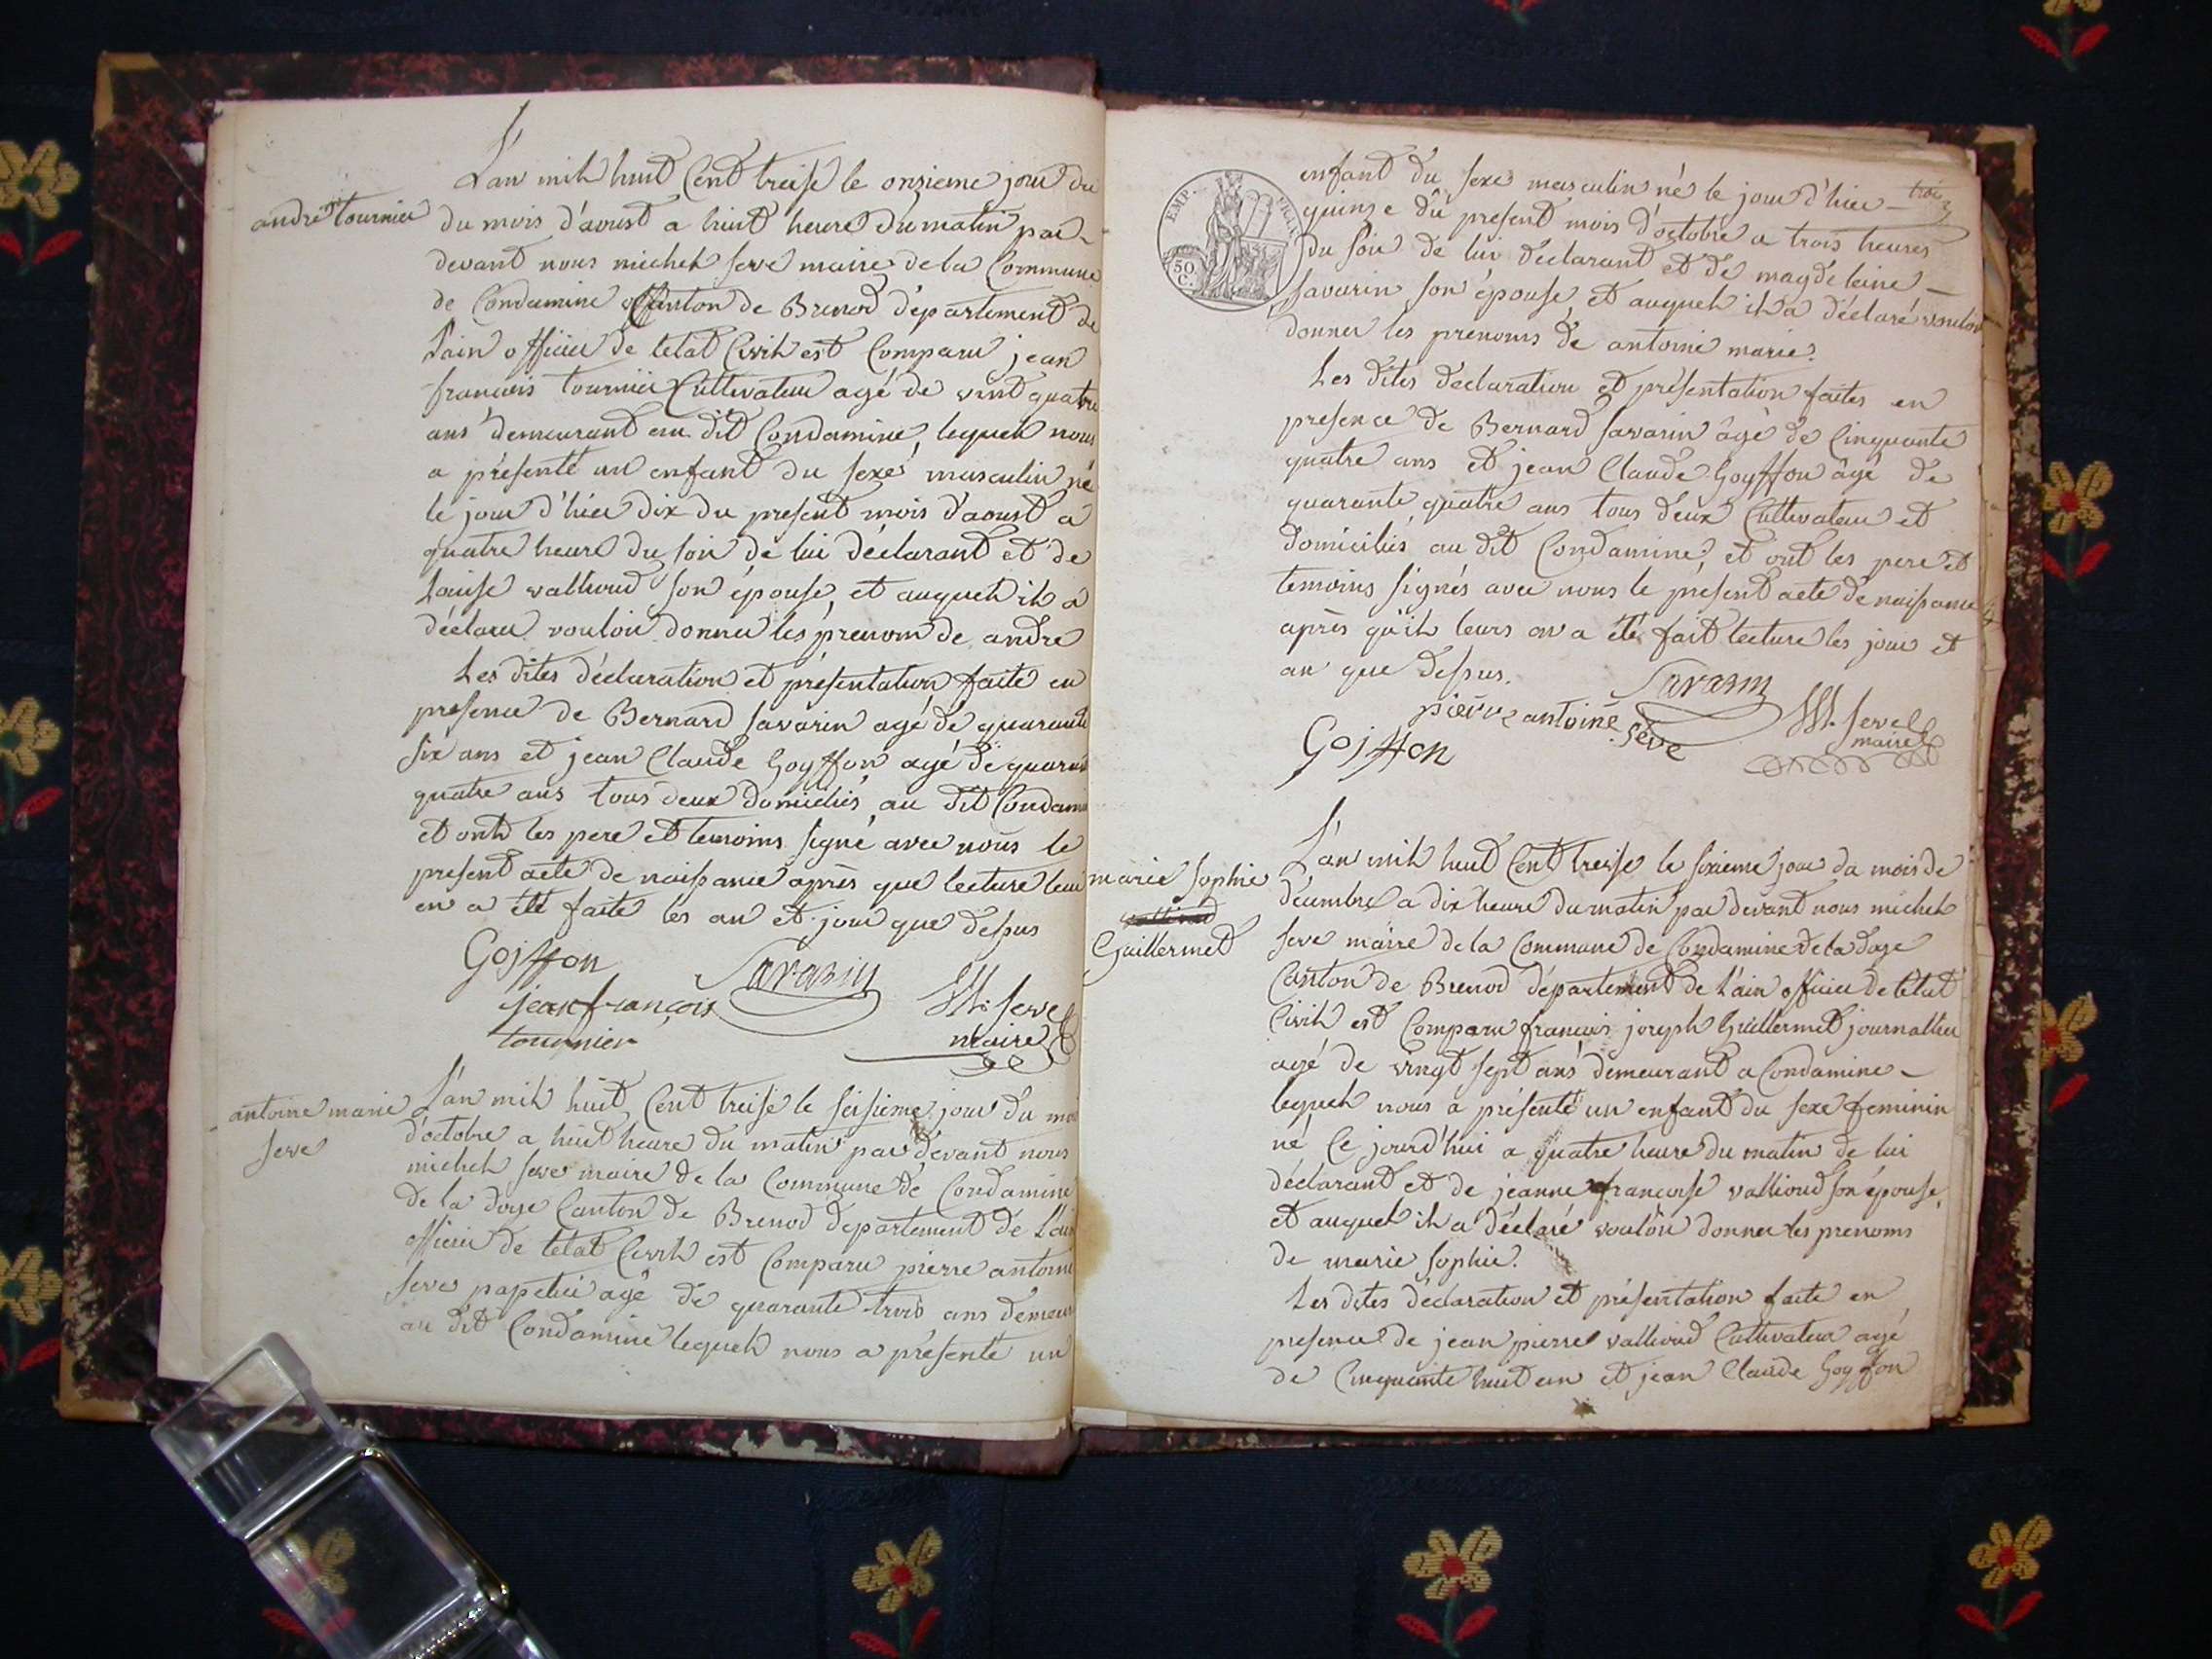 L'an mil huit Cent treise le onzieme jour du
andré tournier
du mois d'aoust a huit heure du matin par
devant nous michel seve maire de la Commune
de Condamine Canton de Brenod département de
l'ain officier de letat Civil est Comparu jean
francois tournier Cultivateur agé de vint quatre
ans demeurant au dit Condamine, lequel nous
a présenté un enfant du sexe masculin né
le jour d'hier dix du present mois d'aoust a
quatre heure du soir de lui déclarant et de
Louise vallioud son épouse, et auquel il a
déclaré vouloir donner les prenom de andre
Les dites déclaration et présentation faite en
presence de Bernard savarin agé de quarante
six ans et jean Claude Goyffon agé de quarante
quatre ans tous deux domiciliés au dit Condamine
et ont les pere et temoins signé avec nous le
present acte de naissance après que lecture leur
en a été faite les an et jour que dessus
Goiffon
Savarin
jean françois
tournier
M. seve
maire
antoine marie
seve
L'an mil huit Cent treise le seisieme jour du mois
d'octobre a huit heure du matin par devant nous
michel seve maire de la Commune de Condamine
de la doye Canton de Brenod departement de l'ain
officier de letat Civil est Comparu pierre antoine
seve papetier agé de quarante trois ans demeurant
au dit Condamine lequel nous a présenté un
EMP. FRAN.
50.
C.
trois
enfant du sexe masculin né le jour d'hier
quinze du present mois d'octobre a trois heures
du soir de lui declarant et de magdeleine
savarin son épouse, et auquel il a déclaré vouloir
donner les prenoms de antoine marie.
Les dites declaration et présentation faites en
presence de Bernard savarin âgé de Cinquante
quatre ans et jean Claude Goyffon âgé de
quarante quatre ans tous deux Cultivateur et
domiciliés au dit Condamine, et ont les pere et
temoins signés avec nous le present acte de naissance
après qu'il leurs en a été fait lecture les jour et
an que dessus.
Savarin
pierre antoine seve
M. seve
maire
Goiffon
marie sophie
Guillermet
L'an mil huit Cent treise le sixieme jour du mois de
décembre a dix heure du matin par devant nous michel
seve maire de la Commune de Condamine de la doye
Canton de Brenod département de l'ain officier de l'état
Civil est Comparu francois joseph Guillermet journallier
agé de vingt sept ans demeurant a Condamine
lequel nous a présenté un enfant du sexe feminin
né Ce jourd'hui a quatre heure du matin de lui
déclarant et de jeanne francoise vallioud son épouse,
et auquel il a déclaré vouloir donner les prenoms
de marie sophie.
Les dites déclaration et présentation faite en
presence de jean pierre vallioud Cultivateur agé
de Cinquante huit an et jean Claude Goyffon